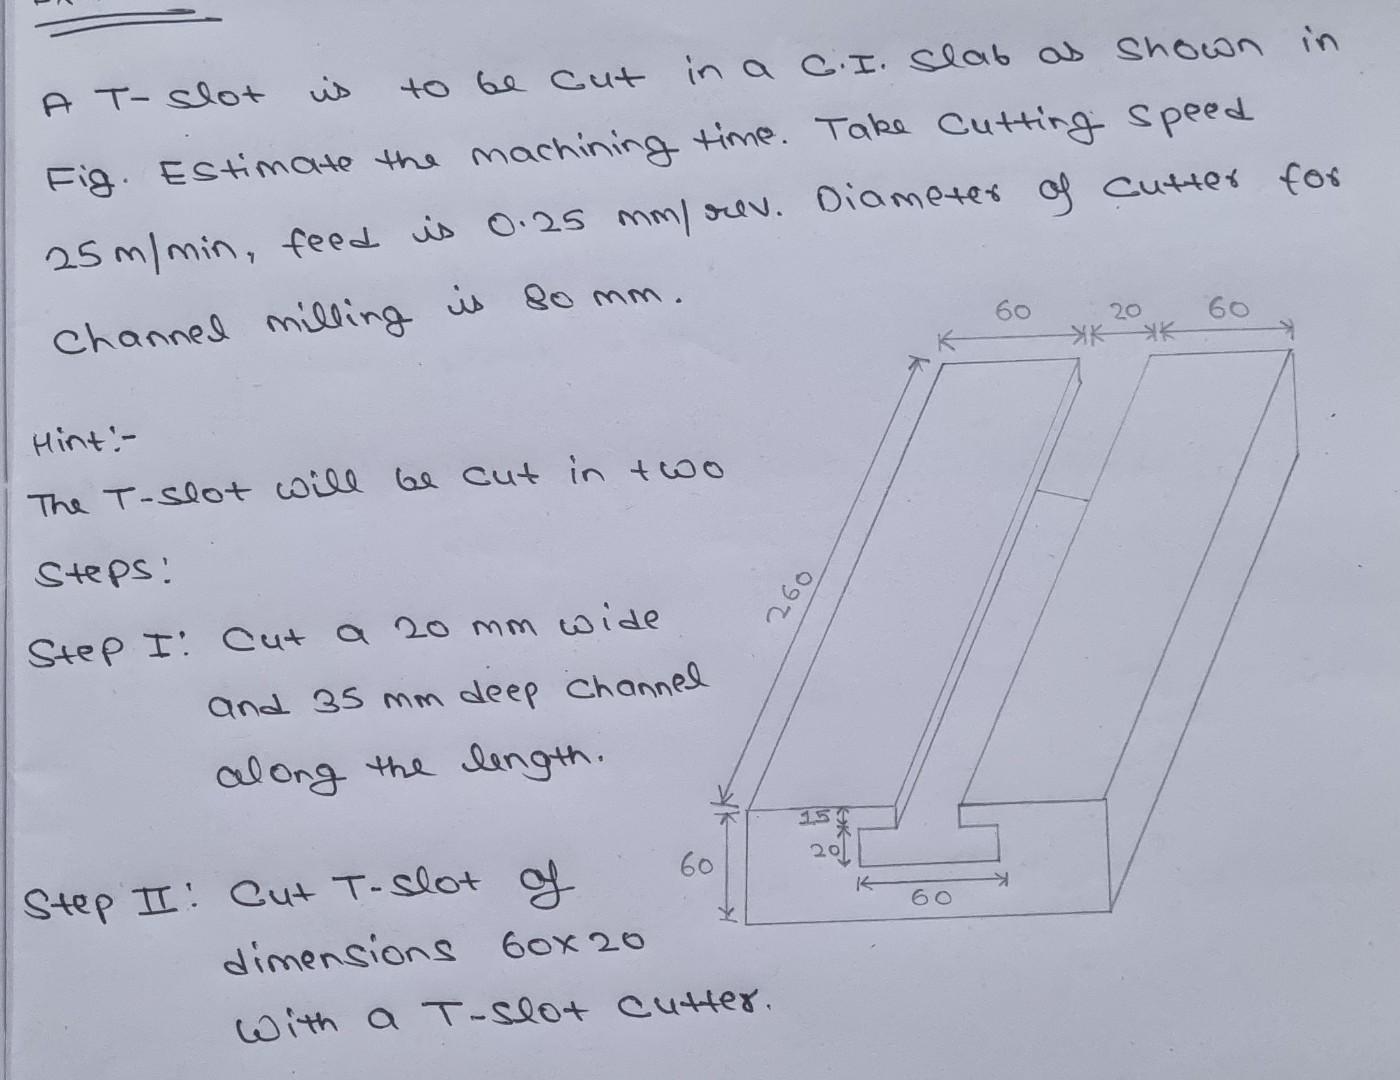 A T-slot is to be cut in a C.I. slab as shown in
Fig. Estimate the machining time. Take Cutting Speed
25 m/min, feed is 0.25 mm/rev. Diameter of cutter for
Channel milling is 80 mm.
60 20 60
Hint:-
The T-slot will be cut in two
Steps:
260
Step I: Cut a 20 mm wide
and 35 mm deep channel
along the length.
15
20
60
60
Step II: Cut T-slot of
dimensions 60x20
with a T-slot cutter.